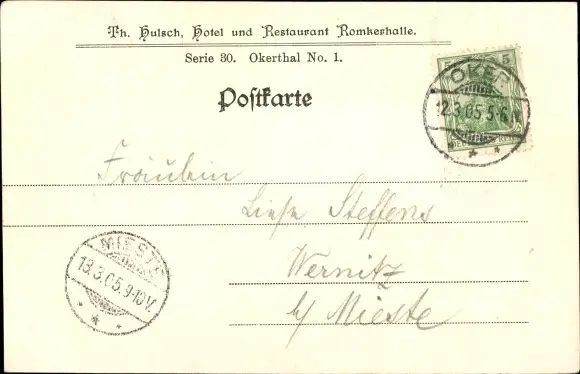 Th. Hulsch, Hotel und Restaurant Romkerhalle.
Serie 30. Okerthal No. 1.
Postkarte
5 5
OKER
12.3.05.5-6.N
Fräulein
Liese Steffens
Wernitz
b/ Mieste
MIESTE
13.3.05.9-10V.